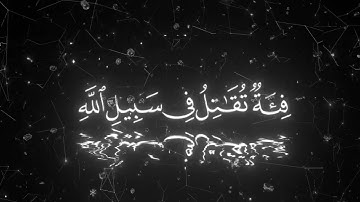 فِئَةٌ تُقَـٰتِلُ فِى سَبِيلِ ٱللَّهِ